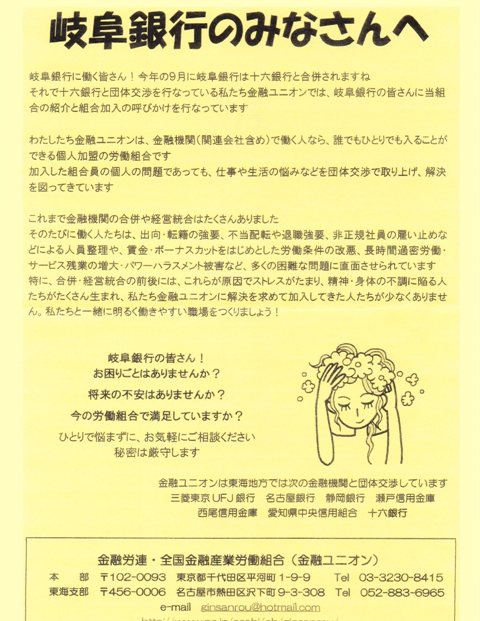 岐阜銀行のみなさんへ
岐阜銀行に働く皆さん！今年の9月に岐阜銀行は十六銀行と合併されますね
それで十六銀行と団体交渉を行なっている私たち金融ユニオンでは、岐阜銀行の皆さんに当組
合の紹介と組合加入の呼びかけを行なっています
わたしたち金融ユニオンは、金融機関（関連会社含め）で働く人なら、誰でもひとりでも入ることが
できる個人加盟の労働組合です
加入した組合員の個人の問題であっても、仕事や生活の悩みなどを団体交渉で取り上げ、解決
を図ってきています
これまで金融機関の合併や経営統合はたくさんありました
そのたびに働く人たちは、出向・転籍の強要、不当配転や退職強要、非正規社員の雇い止めな
どによる人員整理や、賃金・ボーナスカットをはじめとした労働条件の改悪、長時間過密労働・
サービス残業の増大・パワーハラスメント被害など、多くの困難な問題に直面させられています
特に、合併・経営統合の前後には、これらが原因でストレスがたまり、精神・身体の不調に陥る人
たちがたくさん生まれ、私たち金融ユニオンに解決を求めて加入してきた人たちが少なくありませ
ん。私たちと一緒に明るく働きやすい職場をつくりましょう！
岐阜銀行の皆さん！
お困りごとはありませんか？
将来の不安はありませんか？
今の労働組合で満足していますか？
ひとりで悩まずに、お気軽にご相談ください
秘密は厳守します
金融ユニオンは東海地方では次の金融機関と団体交渉しています
三菱東京UFJ銀行　名古屋銀行　静岡銀行　瀬戸信用金庫
西尾信用金庫　愛知県中央信用組合　十六銀行
金融労連・全国金融産業労働組合（金融ユニオン）
本　部　〒102-0093　東京都千代田区平河町1-9-9　Tel　03-3230-8415
東海支部　〒456-0006　名古屋市熱田区沢下町9-3-308　Tel　052-883-6965
e-mail　ginsanrou@hotmail.com